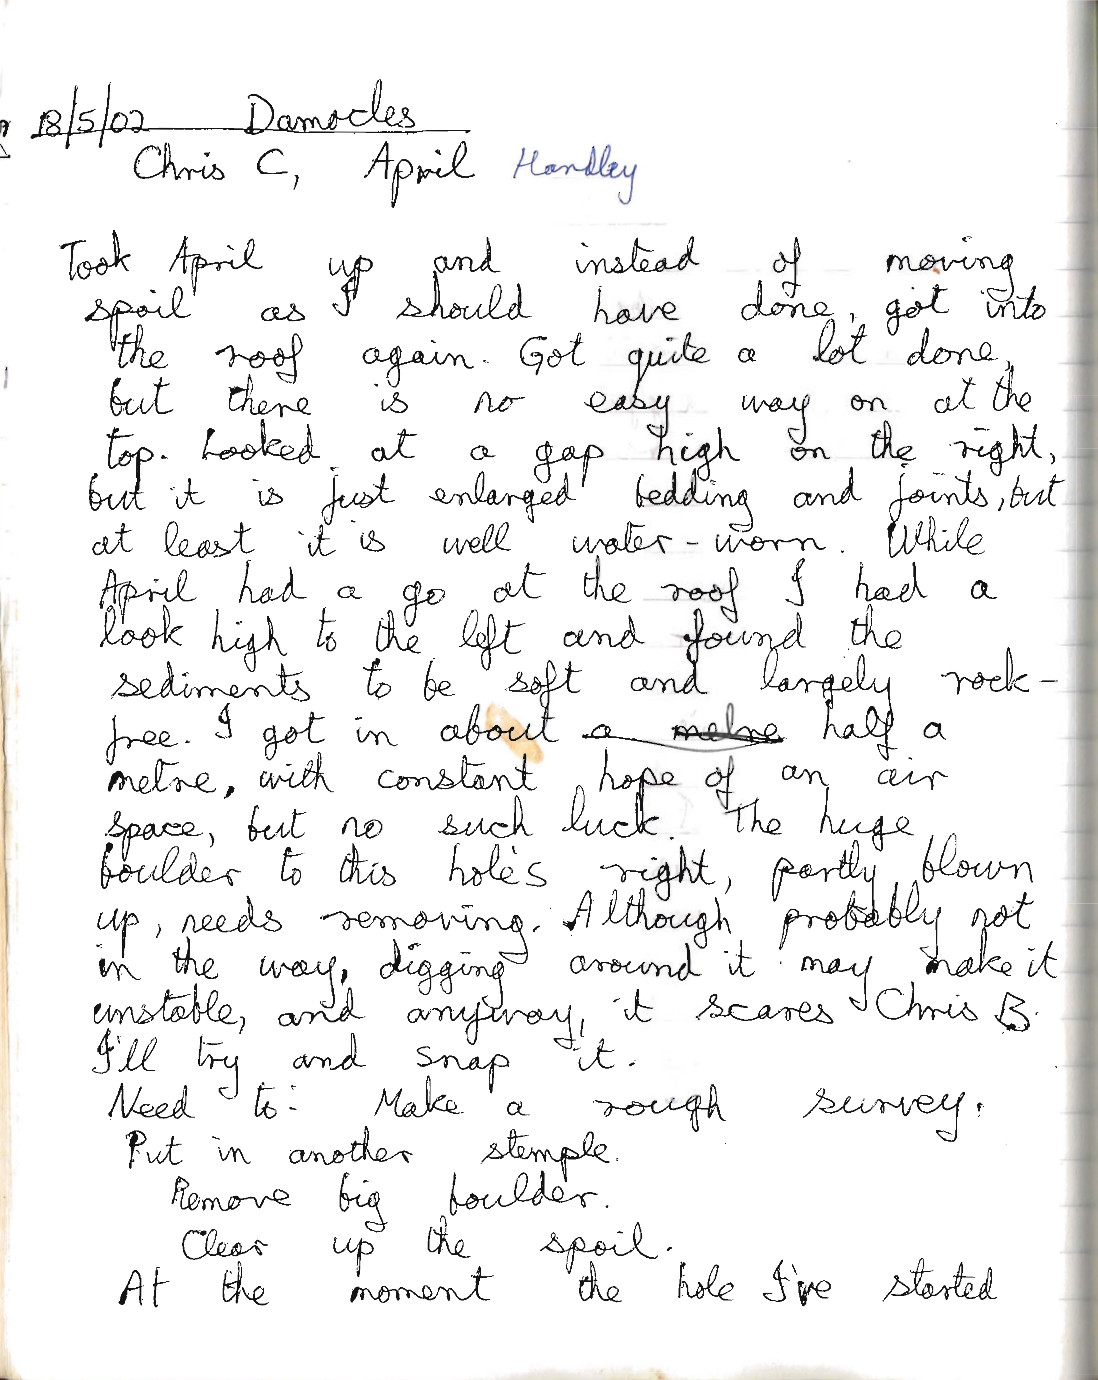 18/5/02 Damocles
Chris C, April Handley
Took April up and instead of moving
spoil as I should have done, got into
the roof again. Got quite a lot done,
but there is no easy way on at the
top. Looked at a gap high on the right,
but it is just enlarged bedding and joints, but
at least it is well water-worn. While
April had a go at the roof I had a
look high to the left and found the
sediments to be soft and largely rock-
free. I got in about a metre half a
metre, with constant hope of an air
space, but no such luck. The huge
boulder to this hole's right, partly blown
up, needs removing. Although probably not
in the way, digging around it may make it
unstable, and anyway, it scares Chris B.
I'll try and snap it.
Need to:- Make a rough survey.
Put in another stemple.
Remove big boulder.
Clear up the spoil.
At the moment the hole I've started